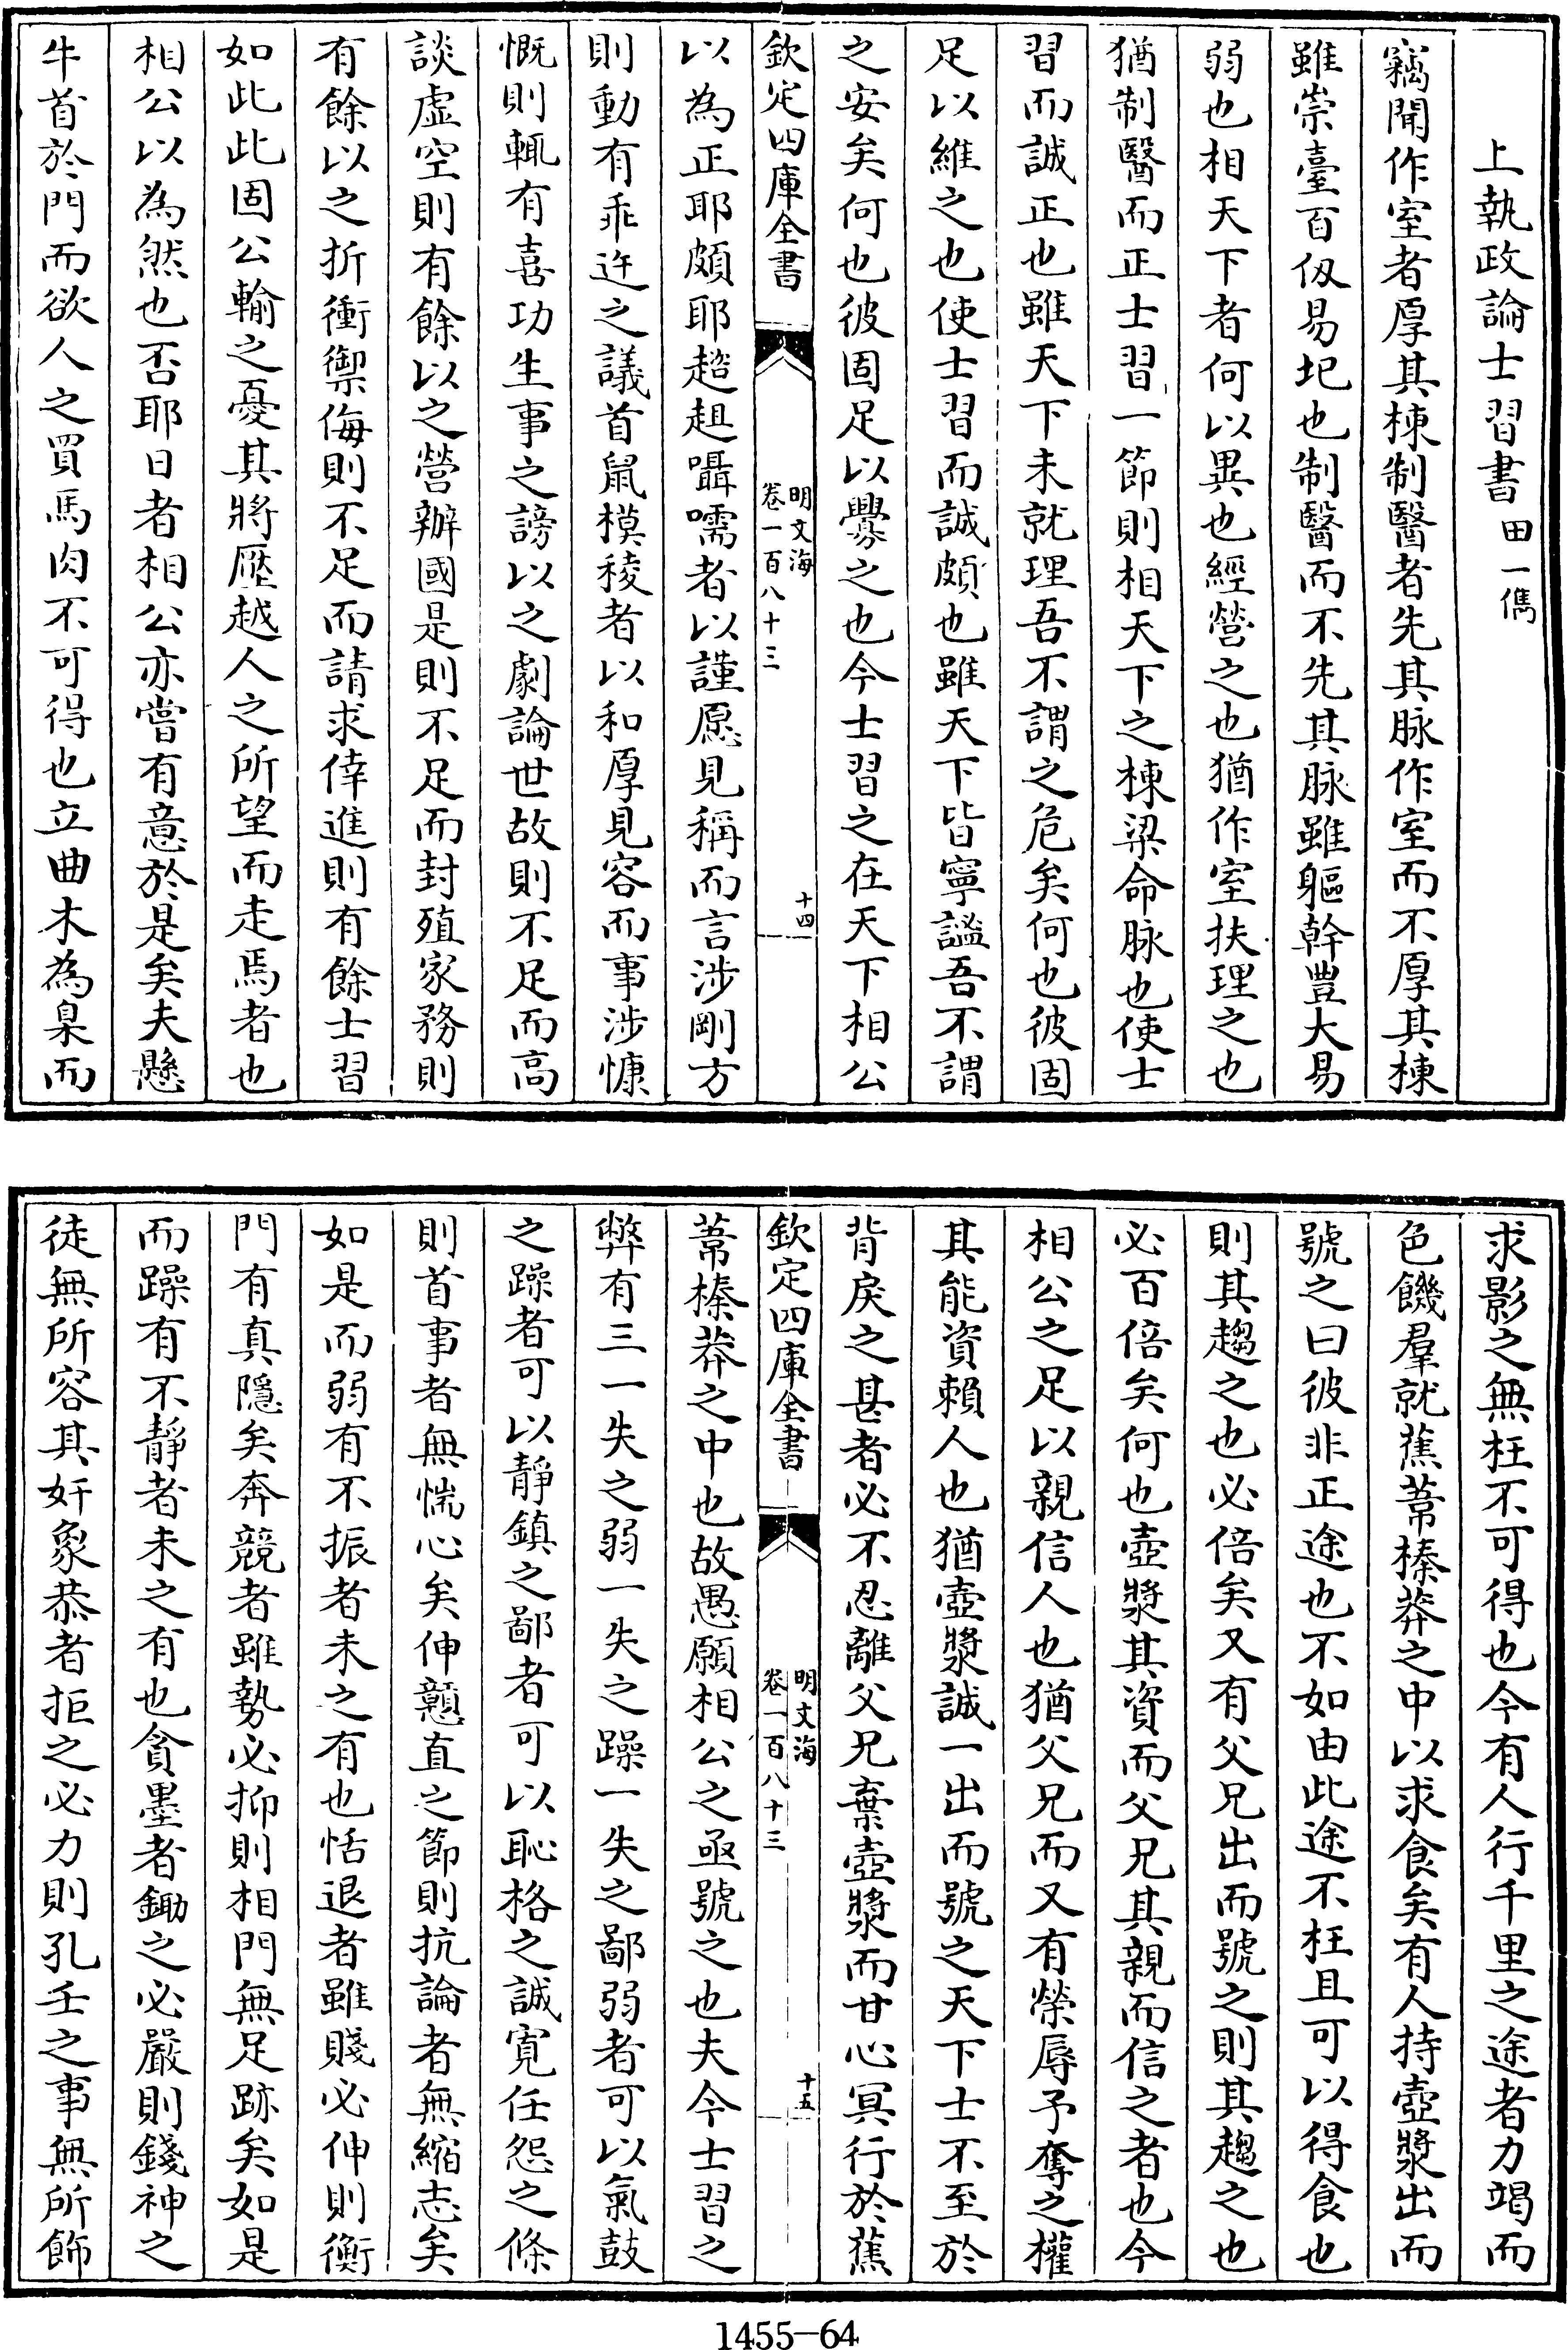 上執政論士習書田一儁
竊聞作室者厚其棟制醫者先其脉作室而不厚其棟
雖崇臺百仭易圮也制醫而不先其脉雖軀幹豐大易
弱也相天下者何以異也經營之也猶作室扶理之也
猶制醫而正士習一節則相天下之棟梁命脉也使士
習而誠正也雖天下未就理吾不謂之危矣何也彼固
足以維之也使士習而誠頗也雖天下皆寧謐吾不謂
之安矣何也彼固足以釁之也今士習之在天下相公
欽定四庫全書
明文海
卷一百八十三
十四
以為正耶頗耶趦趄囁嚅者以謹愿見稱而言涉剛方
則動有乖迕之議首鼠模稜者以和厚見容而事涉慷
慨則輒有喜功生事之謗以之劇論世故則不足而高
談虚空則有餘以之營辦國是則不足而封殖家務則
有餘以之折衝禦侮則不足而請求倖進則有餘士習
如此此固公輸之憂其將壓越人之所望而走焉者也
相公以為然也否耶日者相公亦嘗有意於是矣夫懸
牛首於門而欲人之買馬肉不可得也立曲木為臬而
求影之無枉不可得也今有人行千里之途者力竭而
色饑羣就蕉蒿榛莽之中以求食矣有人持壺漿出而
號之曰彼非正途也不如由此途不枉且可以得食也
則其趨之也必倍矣又有父兄出而號之則其趨之也
必百倍矣何也壺漿其資而父兄其親而信之者也今
相公之足以親信人也猶父兄而又有榮辱予奪之權
其能資賴人也猶壺漿誠一出而號之天下士不至於
背戾之甚者必不忍離父兄棄壺漿而甘心冥行於蕉
欽定四庫全書
明文海
卷一百八十三
十五
蒿榛莽之中也故愚願相公之亟號之也夫今士習之
弊有三一失之弱一失之躁一失之鄙弱者可以氣鼓
之躁者可以靜鎮之鄙者可以恥格之誠寛任怨之條
則首事者無惴心矣伸戇直之節則抗論者無縮志矣
如是而弱有不振者未之有也恬退者雖賤必伸則衡
門有真隱矣奔競者雖勢必抑則相門無足跡矣如是
而躁有不靜者未之有也貪墨者鋤之必嚴則錢神之
徒無所容其奸象恭者拒之必力則孔壬之事無所飾
1455-64